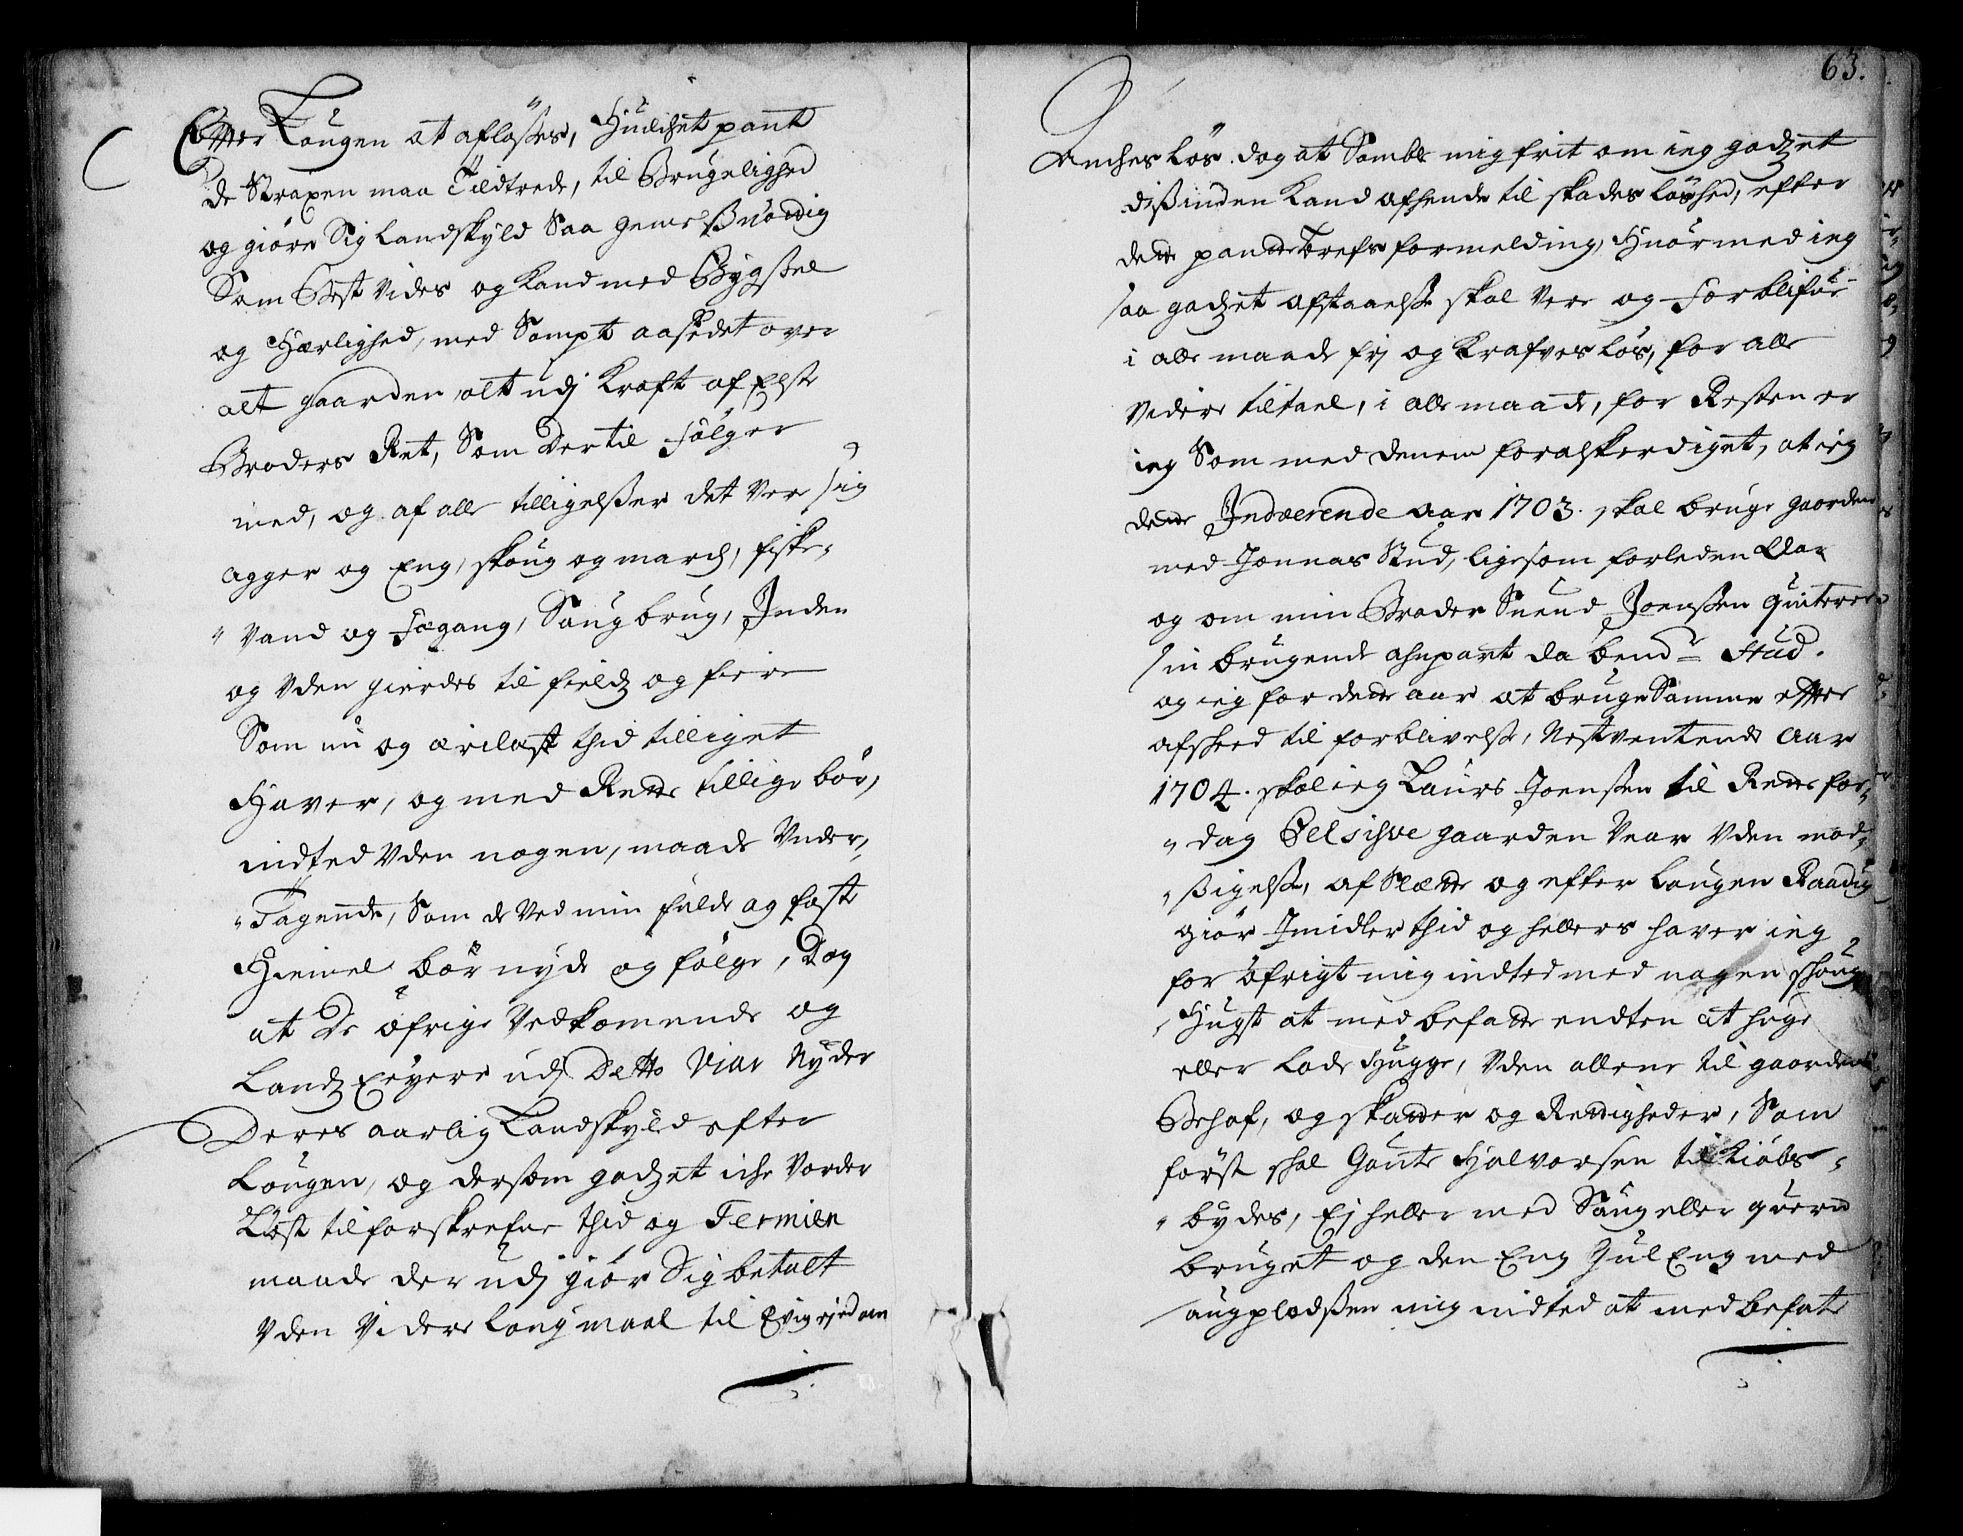 Effter Lougen at afløsses, Huilchet pant
de Straxen maa Tildtrede, til Brugelighed
og giøre Sig Landskyld Saa
Som Best Vides og Kand med Bygssel
og Herlighed, med Sampt aasædet over
alt gaarden, alt udj Kraft af Elste
Broders Ret, Som Dertil følger
med, og af alle tilligelsser det Vere sig
agger og Eng, skoug og march, fiske-
Vand og Fægang, Saugbrug, Inden
og Uden gierdes til fieldz og fiere
Som nu og arilast thid tilliget
Haver, og med Rette tillige bør,
indted Uden nogen, maade Under-
Tagende, Som de Ved min fulde og faste
Hiemel bør nyde og følge, Dog
at De øfrige Vedkomende og
Landz Eeyere udj Dette Viar Nyder
Deres aarlig Landskyld efter
Lougen, og dersom godzet iche Vorder
Løst til forskrefne thid og Termien
maade der udj giør Sig betalt
Uden Videre Laugmaal til Evig ejedom
63.
Anches Løs. dog at Samble mig frit om ieg godzet
dissinden Kand afhende til skadesløshed, efter
dette pantte brefs formelding, Huormed ieg
saa godzet afstaaelse skal Vere og Forblifve
i alle maade frj og Krafvesløs, for alle
Videre tiltael, i alle maade, for Resten er
ieg Som med denem foraskerdiget, at ieg
dette Indværende aar 1703. skal bruge gaarden
med Jonnas Stud, ligesom forleden Aar
og om min Broder Suend Joenssen quiterer
sin brugende part da bend.te Stud.
og ieg for dette aar at bruge Samme efter
afskeed til forblivelse, Nestventende aar
1704. skal ieg Laurs Joenssen til Rette for-
dag Selsihve gaarden Vear Uden mod-
sigelse, af Slætte og efter Lougen Raadig
giør Imidler thid og hellers haver ieg
for øfrigt mig indted med nogen skoug
Hugst at med befatte endten at huge
eller Lade Hugge, Uden allene til gaardens
Behof, og skatter og Rettigheder, Som
først skal Gunte Halvorsen til Kiøbs-
bydes, Ej heller med Saug eller quern
bruget og den Eng Jul Eng med
saugpladssen mig indted at med befate